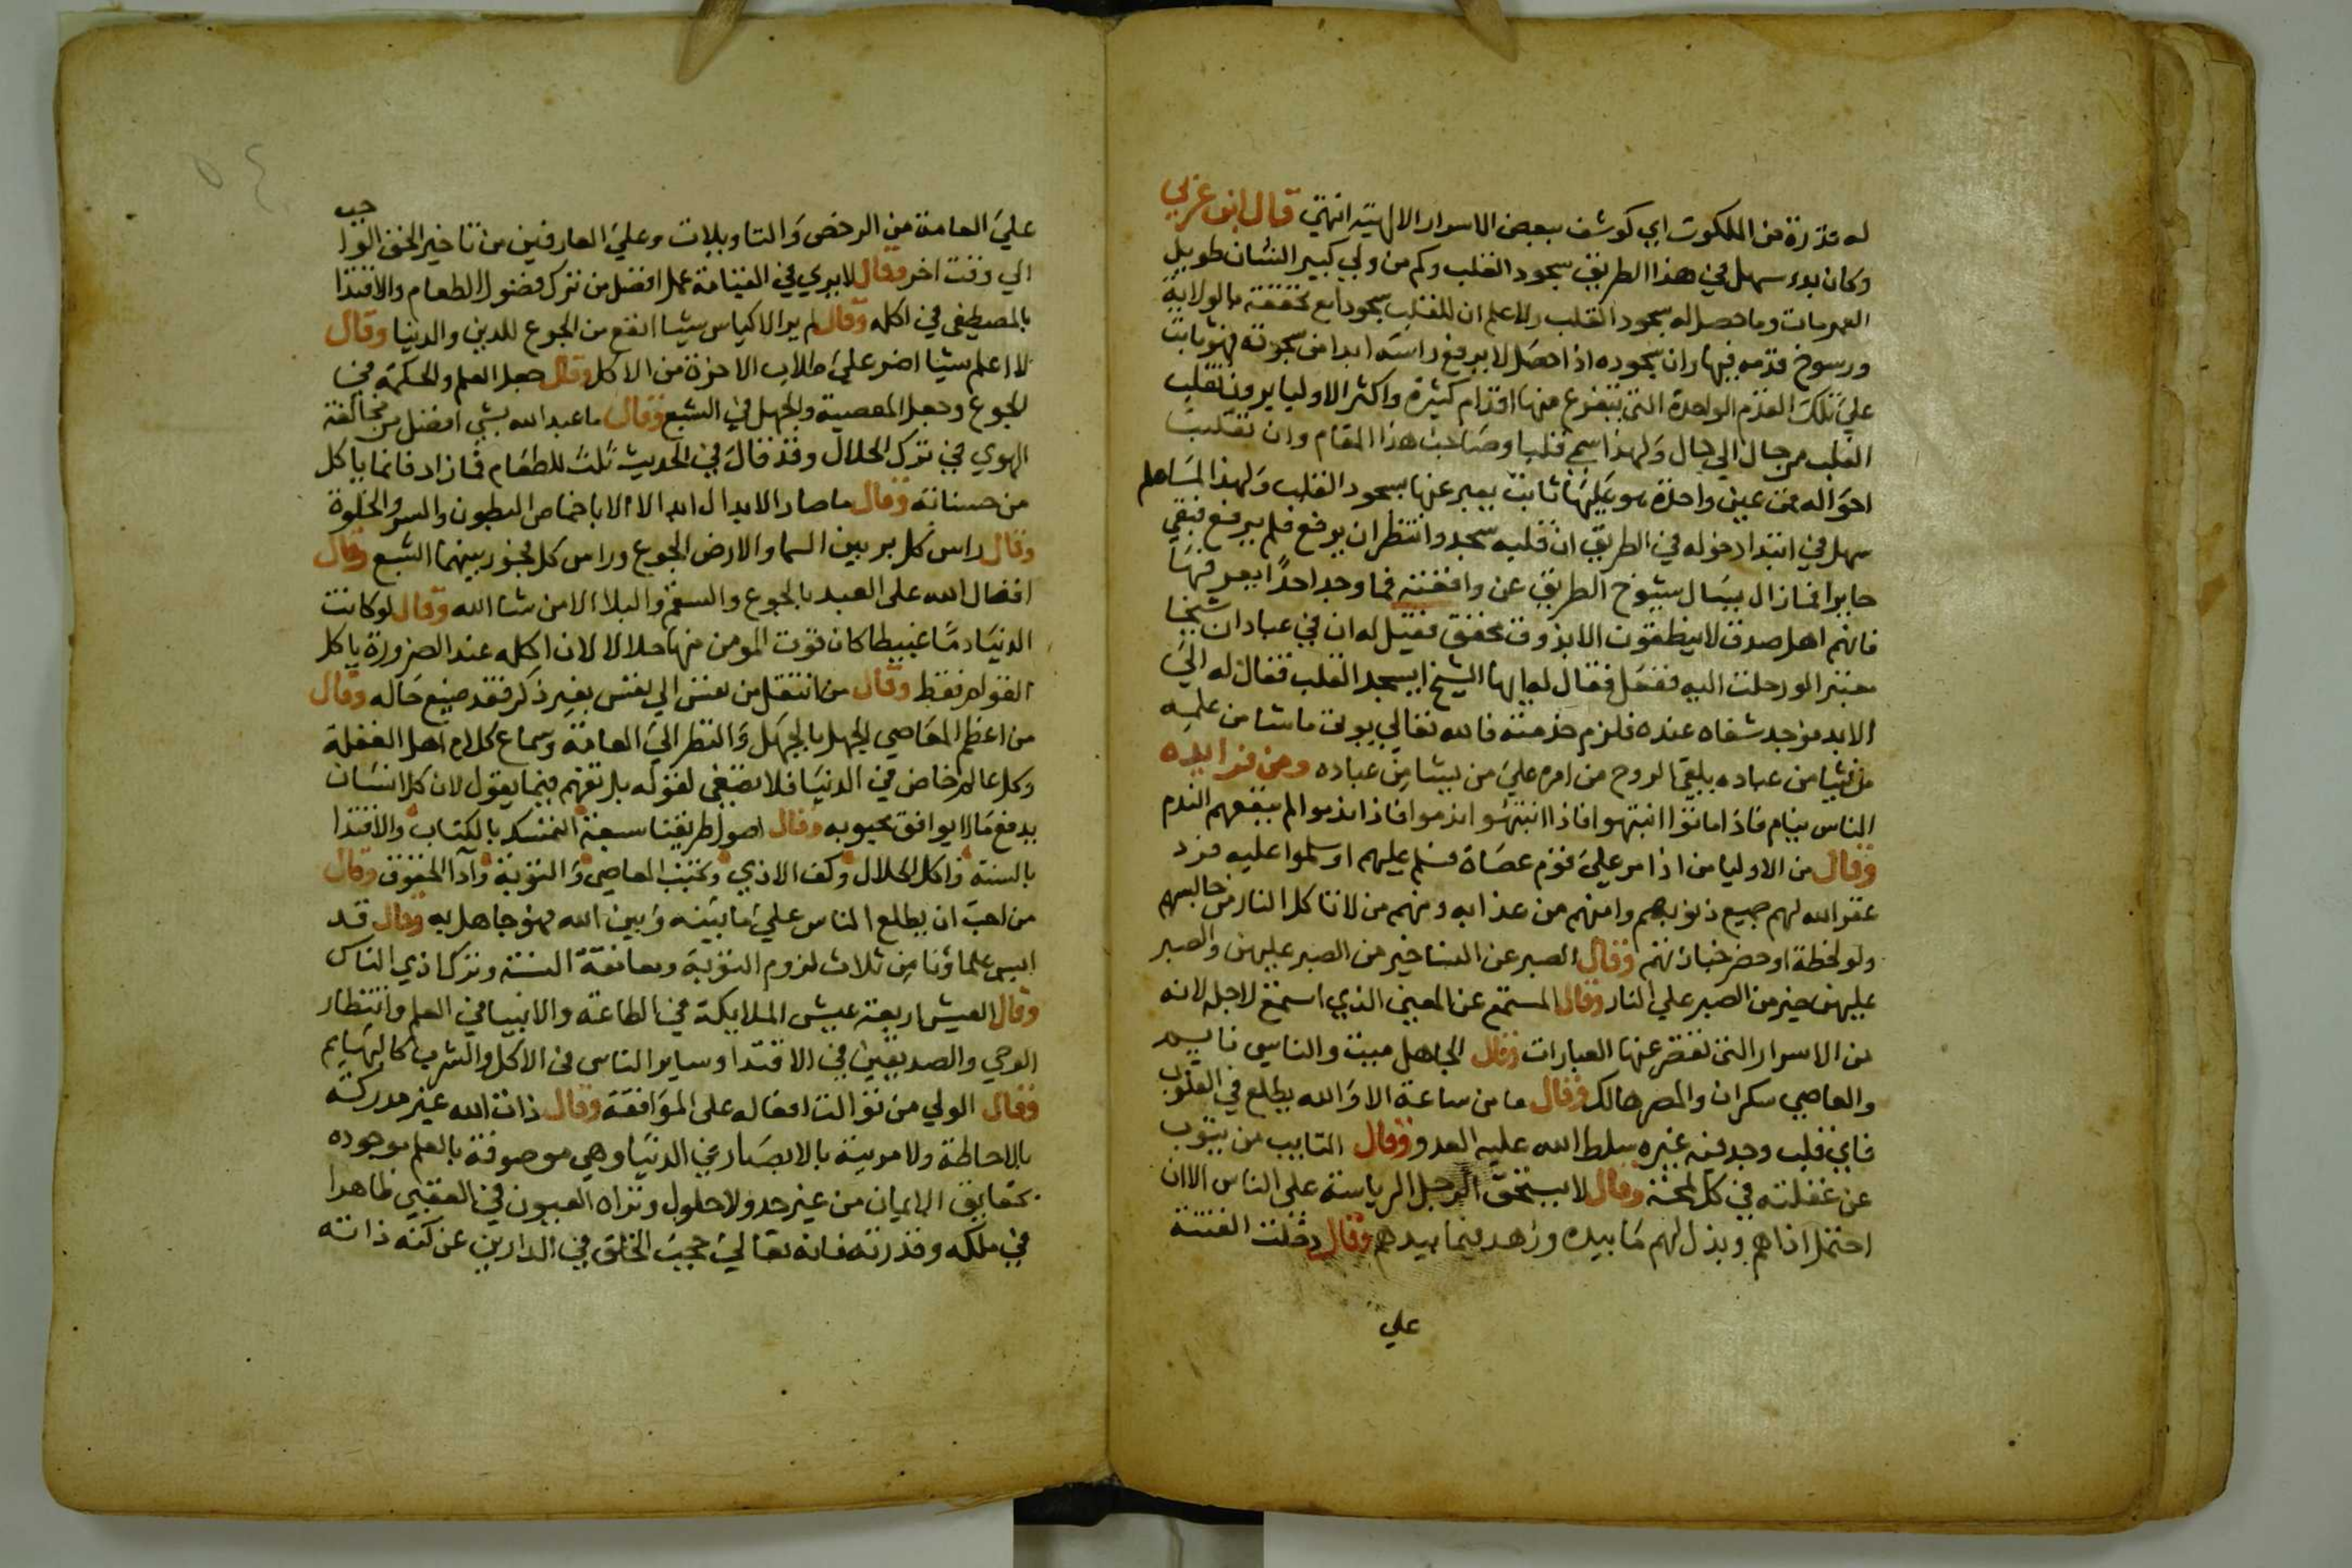 له قدرة من الملكوت اي كوشف ببعض الاسرار الالهية انتهي قال ابن عربي
وكان بدء سهل في هذا الطريق سجود القلب وكم من ولي كبير الشان طويل
العمر مات وما حصل له سجود القلب ولا علم ان للقلب سجودا مع تحققه بالولاية
ورسوخ قدمه فيها وان سجوده اذا حصل لا يرفع راسه ابدا من سجدته فهو ثابت
علي تلك القدم الواحدة التي يتفرع منها اقدام كثيرة واكثر الاوليا يرون تقلب
القلب من حال الي حال ولهذا سمي قلبا وصاحب هذا المقام وان تقلبت
احواله فمن عين واحدة هو عليها ثابت يعبر عنها بسجود القلب ولهذا لما دخل
سهل في ابتدا دخوله في الطريق ان قلبه سجد وانتظر ان يرفع فلم يرفع فبقي
حايرا فما زال يسال شيوخ الطريق عن واقعته فما وجد احدا يعرفها
فانهم اهل صدق لا ينطقون الا بذوق محقق فقيل له ان في عبادان شيخا
معتبرا لو رحلت اليه ففعل فقال له ايها الشيخ ايسجد القلب فقال له الي
الابد فوجد شفاه عنده فلزم خدمته فالله تعالي يوتي ما شا من علمه
من شا من عباده يلقي الروح من امره علي من يشا من عباده ومن فوايده
الناس نيام فاذا ماتوا انتبهوا فاذا انتبهوا ندموا فاذا ندموا لم ينفعهم الندم
وقال من الاوليا من اذا مر علي قوم عصاة فسلم عليهم او سلموا عليه فرد
غفر الله لهم جميع ذنوبهم وامنهم من عذابه ومنهم من لا تاكل النار من جالسهم
ولو لحظة او حضر جنازتهم وقال الصبر عن النسا خير من الصبر عليهن والصبر
عليهن خير من الصبر علي النار وقال المستمع عن المعين الذي استمع لاجله لانه
من الاسرار التي تقصر عنها العبارات وقال الجاهل ميت والناسي نايم
والعاصي سكران والمصر هالك وقال ما من ساعة الا والله يطلع في القلوب
فاي قلب وجد فيه غيره سلط الله عليه العدو وقال التايب من يتوب
عن غفلته في كل لمحة وقال لا يستحق الرجل الرياسة علي الناس الا ان
احتمل اذاهم وبذل لهم ما بيده وزهد فيما بيدهم وقال دخلت الفتنة
علي
علي العامة من الرخص والتاويلات وعلي العارفين من تاخير الحق الواجب
الي وقت اخر وقال لا يري في القيامة عمل افضل من ترك فضول الطعام والاقتدا
بالمصطفي في اكله وقال لم ير الاكياس شيا انفع من الجوع للدين والدنيا وقال
لا اعلم شيا اضر علي طلاب الاخرة من الاكل وقال جعل العلم والحكمة في
الجوع وجعل المعصية والجهل في الشبع وقال ما عبد الله بشي افضل من مخالفة
الهوي في ترك الحلال وقد قال في الحديث ثلث للطعام فما زاد فانما ياكل
من حسناته وقال ما صار الابدال ابدالا الا باخماص البطون والسهر والخلوة
وقال راس كل بر بين السما والارض الجوع وراس كل فجور بينهما الشبع وقال
افضال الله علي العبد بالجوع والسقم والبلا الا من شا الله وقال لو كانت
الدنيا دما عبيطا كان قوت المومن منها حلالا لان اكله عند الضرورة ياكل
القوام فقط وقال من انتقل من نفس الي نفس بغير ذكر فقد ضيع حاله وقال
من اعظم المعاصي الجهل بالجهل والنظر الي العامة وسماع كلام اهل الغفلة
وكل عالم خاض في الدنيا فلا يصغي لقوله بل تفهم فيما يقول لان كل انسان
يدفع ما لا يوافق محبوبه وقال اصول طريقتنا سبعة التمسك بالكتاب والاقتدا
بالسنة واكل الحلال وكف الاذي وتجنب المعاصي والتوبة وآدا الحقوق وقال
من احب ان يطلع الناس علي ما بينه وبين الله فهو جاهل به وقال قد
ايس علماؤنا من ثلاث لزوم التوبة ومعانقة السنة وترك اذي الناس
وقال العيش اربعة عيش الملايكة في الطاعة والانبيا في العلم وانتظار
الوحي والصديقين في الاقتدا وساير الناس في الاكل والشرب كالبهايم
وقال الولي من توالت افعاله علي الموافقة وقال ذات الله غير مدركة
بالاحاطة ولا مريية بالابصار في الدنيا وهي موصوفة بالعلم موجوده
بحقايق الايمان من غير حد ولا حلول وتراه العيون في العقبي ظاهرا
في ملكه وقدرته فانه تعالي حجب الخلق في الدارين عن كنه ذاته